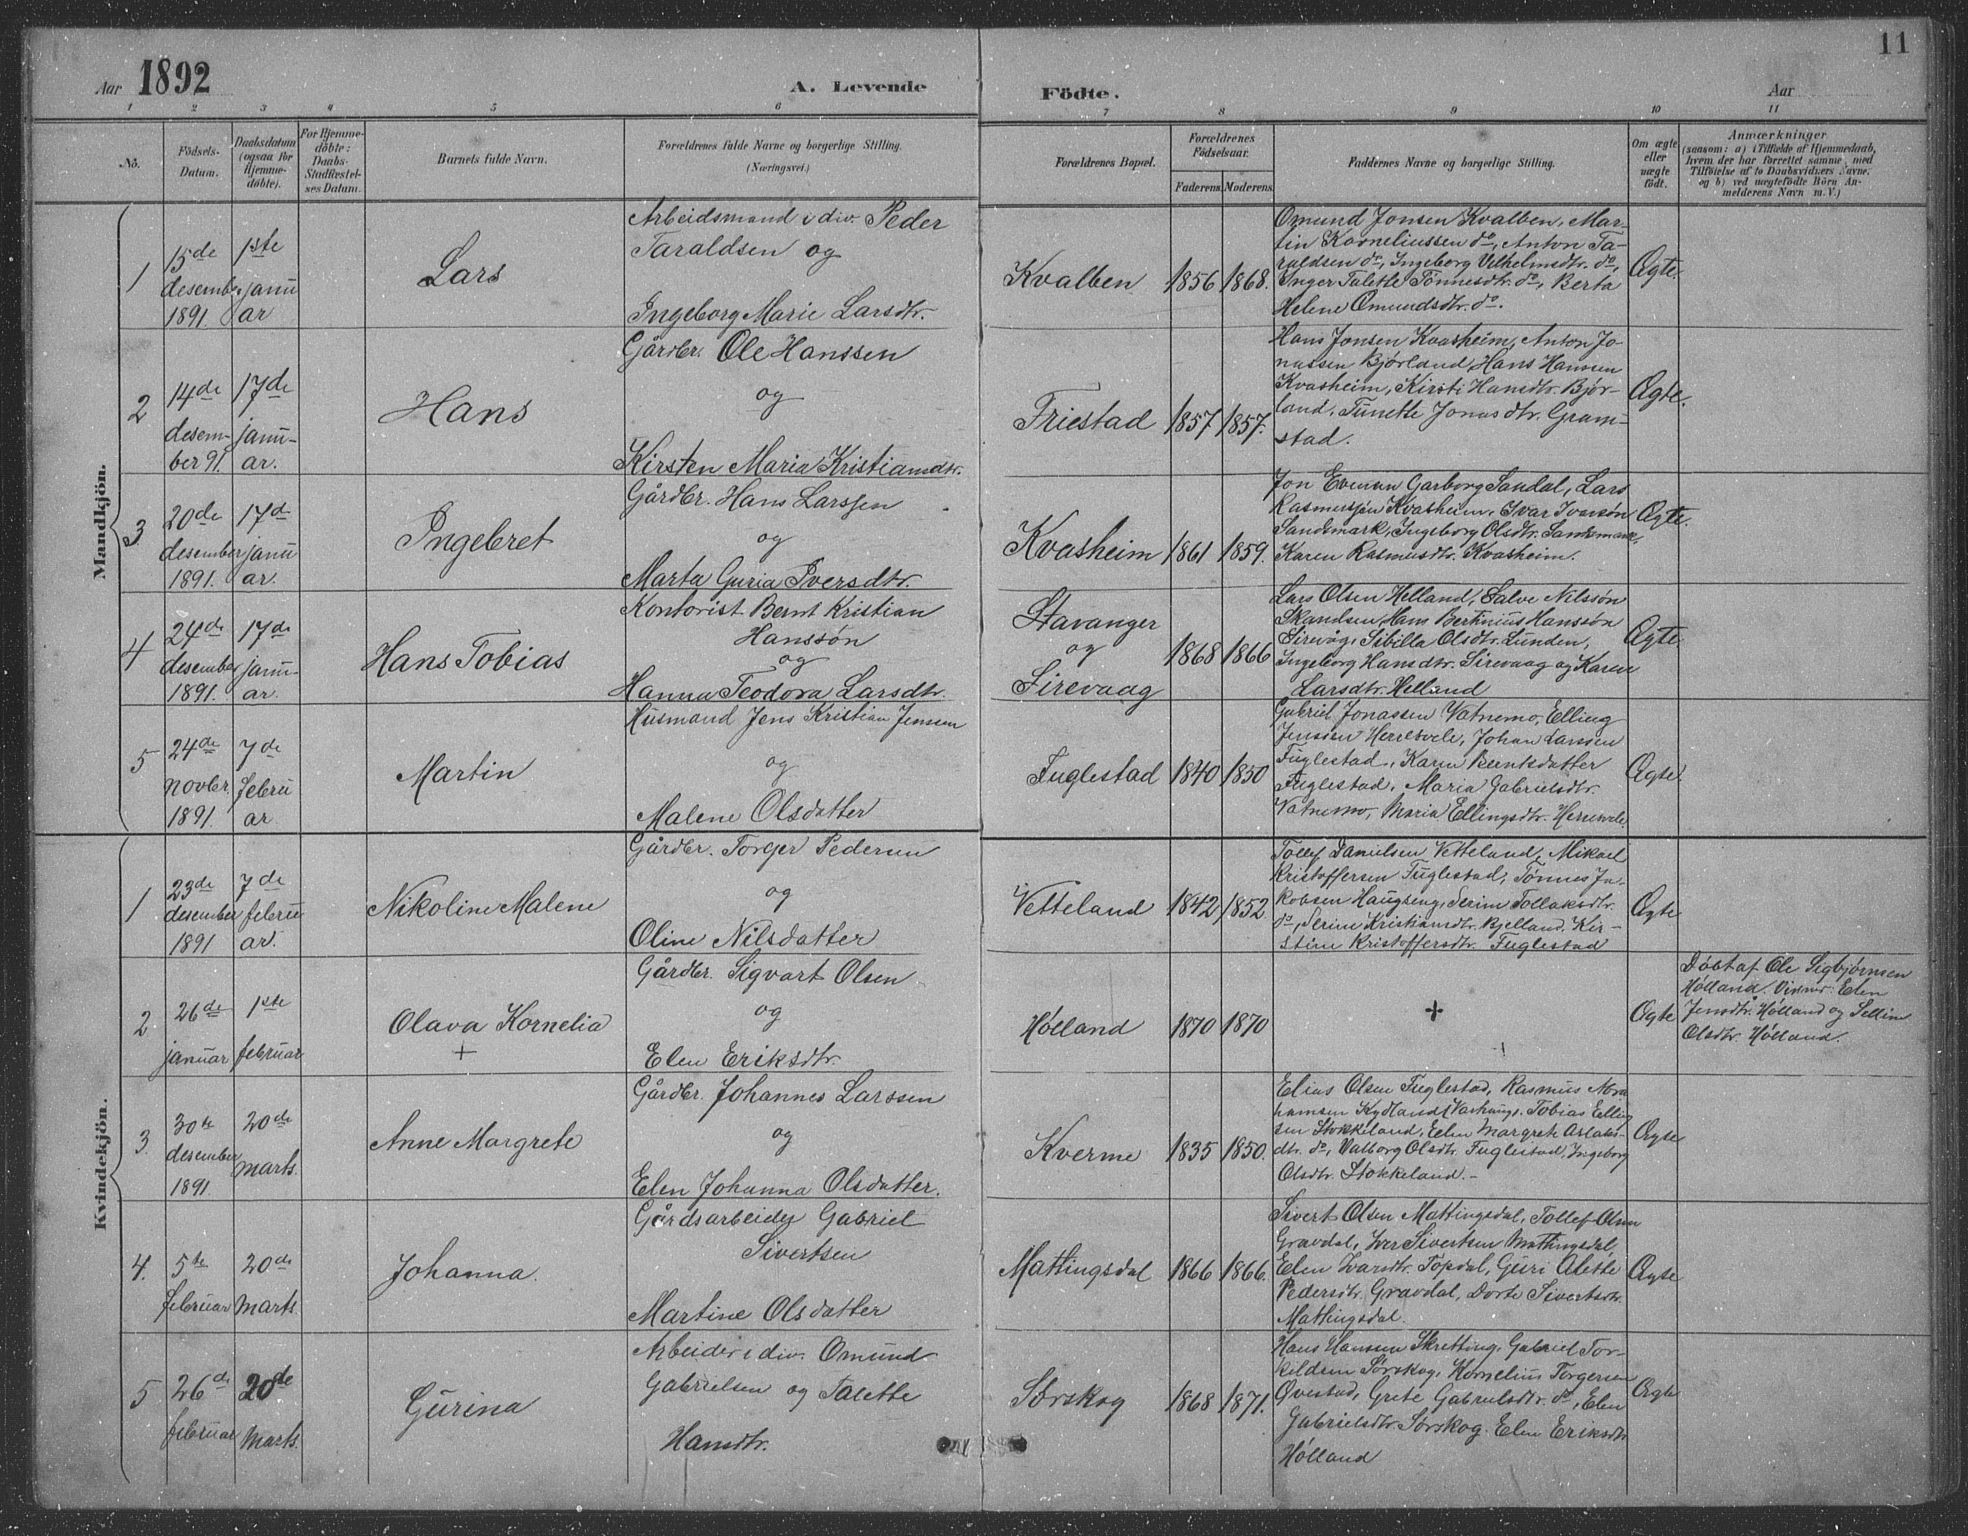 11
Aar 1892 A. Levende Födte. Aar
1 2 3 4 5 6 7 8 9 10 11
No. Födsels-Datum. Daabsdatum (ogsaa for Hjemme-døbte). For Hjemme-döbte: Daabs-Stadfæstel-ses Datum. Barnets fulde Navn. Forældrenes fulde Navne og borgerlige Stilling. (Næringsvei.) Forældrenes Bopæl. Forældrenes Födselsaar. Faderens. Moderens. Faddernes Navne og borgerlige Stilling. Om ægte eller uægte födt. Anmærkninger (saasom: a) i Tilfælde af Hjemmedaab, hvem der har forrettet samme, med Tilföielse af to Daabsvidners Navne, og b) ved uægtefödte Börn An-melderens Navn m. V.)
Mandkjön.
1 15de desembr. 1891. 1ste januar
Lars
Arbeidsmand i div. Peder
Taraldsen og
Ingeborg Marie Larsdtr.
Kvalben 1856 1868.
Omund Jonsen Kvalben, Mar-
tin Korneliussen do, Anton Ta-
raldsen do, Ingeborg Vilhelmsdtr. do,
Inger Talette Tönnesdtr. do, Berta
Helene Omundsdtr. do.
Ægte.
2 14de desem-ber 91. 17de janu-ar.
Hans
Gårdbr. Ole Hanssen
og
Kirsten Maria Kristiansdtr.
Friestad 1857 1857.
Hans Jonsen Kvasheim, Anton Jo-
nassen Bjørland, Hans Hansen
Kvasheim, Kirsti Hansdtr. Bjør-
land, Tunette Jonasdtr. Gram-
stad.
Ægte.
3. 20de desember 1891. 17de januar.
Ingebret
Gårdbr. Hans Larssen
og
Marta Guria Iversdtr.
Kvasheim 1861 1859.
Jon Evensen Garborg Sandal, Lars
Rasmussøn Kvasheim, Ivar Ivarsøn
Sandsmark, Ingeborg Olsdtr. Sandsmark,
Karen Rasmusdtr. Kvasheim.
Ægte.
4 24de desember 1891. 17de janu-ar.
Hans Tobias
Kontorist Bernt Kristian
Hanssøn
og
Hanna Teodora Larsdtr.
Stavanger
og
Sirevaag
1868 1866
Lars Olsen Helland, Salve Nilssøn
Skandsen, Hans Bertinius Hanssøn
Sirevåg, Sibilla Olsdtr. Lunden,
Ingeborg Hansdtr. Sirevaag og Karen
Larsdtr. Helland
Ægte.
5 24de novbr. 1891. 7de februar.
Martin
Husmand Jens Kristian Jensen
og
Malene Olsdatter
Fuglestad 1840 1850
Gabriel Jonassen Vatnemo, Elling
Jenssen Herresvele, Johan Larssen
Fuglestad, Karen Berntsdatter
Fuglestad, Maria Gabrielsdtr.
Vatnemo, Maria Ellingsdtr. Herresvele.
Ægte.
Kvindekjön.
1 23de desember 1891 7de februar.
Nikoline Malene
Gårdbr. Torger Pedersen
og
Oline Nilsdatter
Vetteland 1842 1852
Tollef Danielsen Vetteland, Mikael
Kristoffersen Fuglestad, Tønnes Ja-
kobsen Haugseng, Serine Tollaksdtr.
do, Serine Kristiansdtr. Bjelland, Kir-
stine Kristoffersdtr. Fuglestad
Ægte
2 26de januar 1ste februar
Olava Kornelia
+
Gårdbr. Sigvart Olsen
og
Elen Eriksdtr.
Hölland 1870 1870
+
Ægte
Døbt af Ole Sigbjørnsen
Hölland. Vidner: Elen
Jensdtr. Hölland og Selline
Olsdtr. Hölland.
3. 30te desember 1891. 20de marts.
Anne Margrete
Gårdbr. Johannes Larssen
og
Elen Johanna Olsdatter.
Kverme 1835 1850.
Elias Olsen Fuglestad, Rasmus Abra
hamsen Kydland, Varhaug, Tobias Elling
sen Stokkeland, Elen Margrete Aslaks-
dtr. do, Valborg Olsdtr. Fuglestad, Ingeborg
Olsdtr. Stokkeland.
Ægte
4. 5te februar 20de marts.
Johanna.
Gårdsarbeider Gabriel
Sivertsen
Martine Olsdatter
Mattingsdal 1866 1866.
Sivert Olsen Mattingsdal, Tollef Olsen
Gravdal, Iver Sivertsen Mattingsdal,
Elen Larsdtr. Topdal, Guri Alette
Pedersdtr. Gravdal, Dorte Sivertsdtr.
Mattingsdal.
Ægte
5 26de februar 20de marts.
Gurina
Arbeider i div. Omund
Gabrielsen og Talette
Hansdtr.
Sørskog 1868 1871.
Hans Hansen Skretting, Gabriel Tor-
keldsen Sørskog, Kornelius Torgersen
Øvestad, Grete Gabrielsdtr. do, Elen
Gabrielsdtr. Sørskog. Elen Eriksdtr
Hölland
Ægte